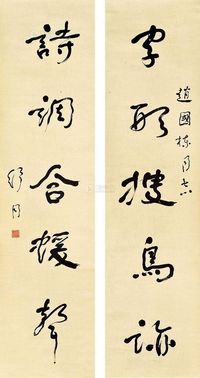 趙國棟同志
字形搜鳥跡
詩調合猨聲
舒同